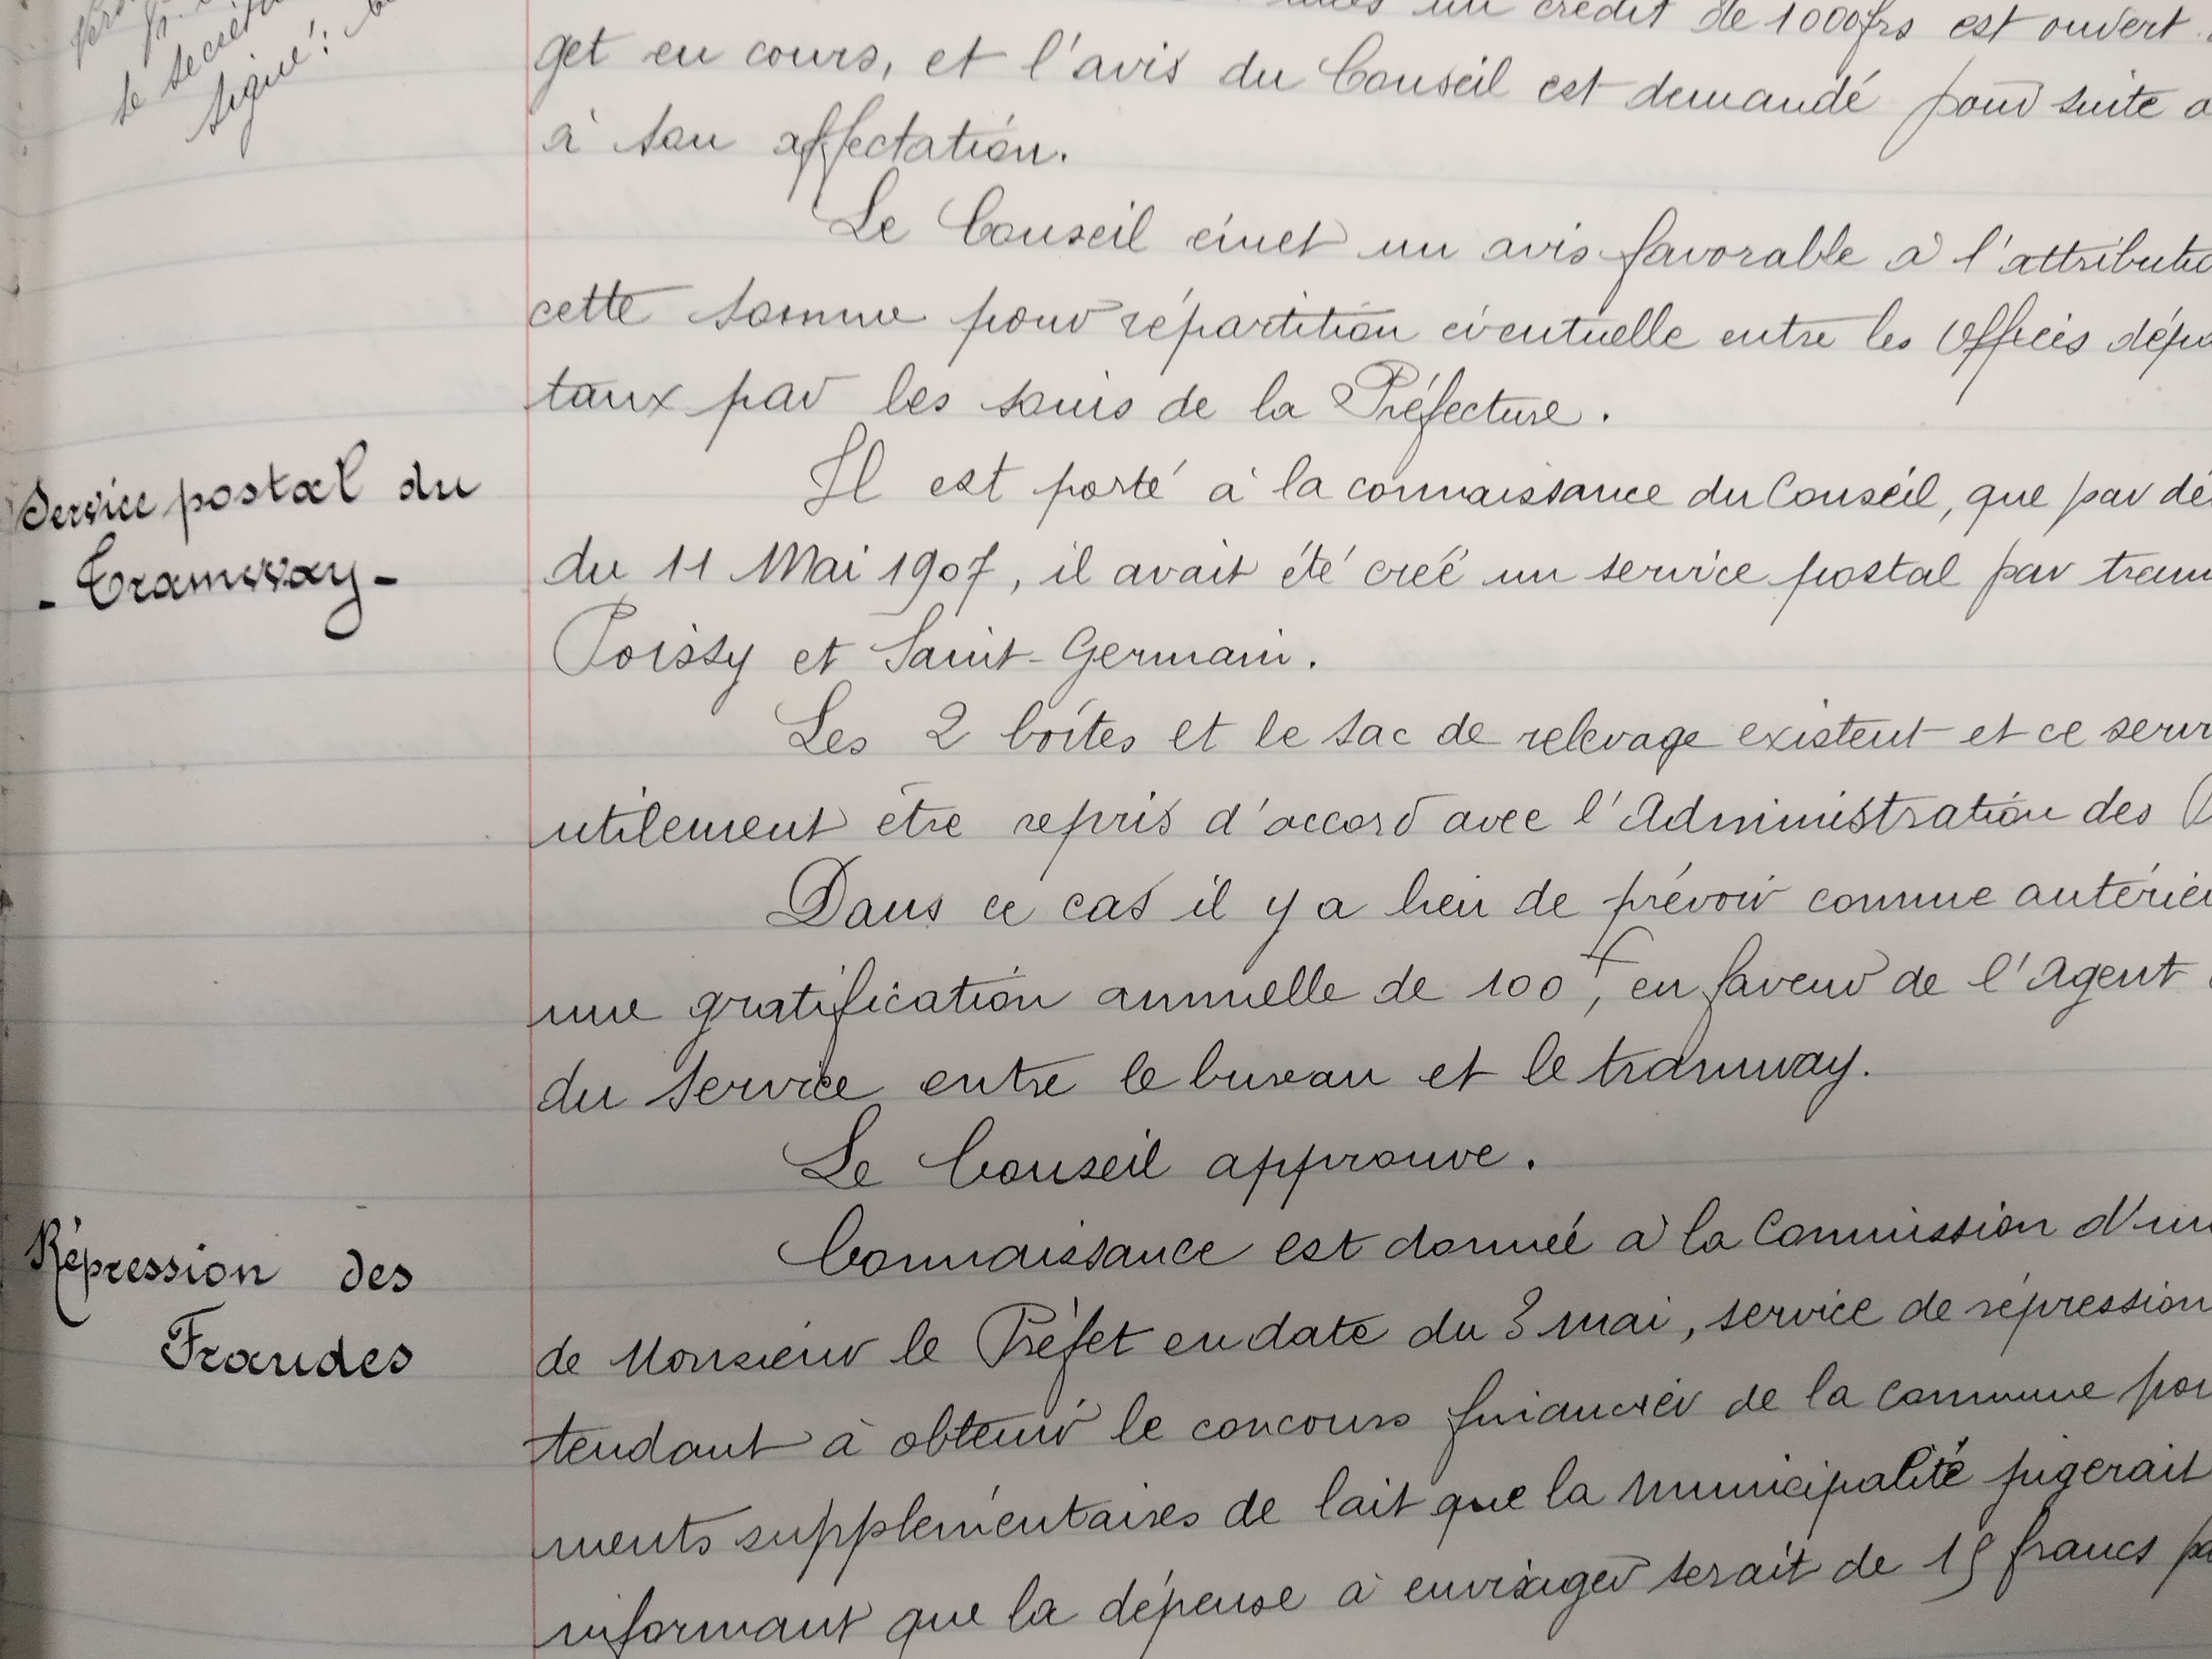 se secrét
signé:
un crédit de 1000frs est ouvert
get en cours, et l'avis du Conseil est demandé pour suite
à son affectation.
Le Conseil émet un avis favorable à l'attributio
cette somme pour répartition éventuelle entre les Offices dépa
taux par les soins de la Préfecture.
Service postal du
- Tramway -
Il est porté à la connaissance du Conseil, que par dé
du 11 Mai 1907, il avait été créé un service postal par tram
Poissy et Saint-Germain.
Les 2 boîtes et le sac de relevage existent et ce serv
utilement être repris d'accord avec l'Administration des P
Dans ce cas il y a lieu de prévoir comme antérieu
une gratification annuelle de 100f, en faveur de l'Agent
du service entre le bureau et le tramway.
Le Conseil approuve.
Répression des
Fraudes
Connaissance est donnée à la Commission d'un
de Monsieur le Préfet en date du 3 mai, service de répression
tendant à obtenir le concours financier de la commune pou
ments supplémentaires de lait que la municipalité jugerait
informant que la dépense à envisager serait de 15 francs pa